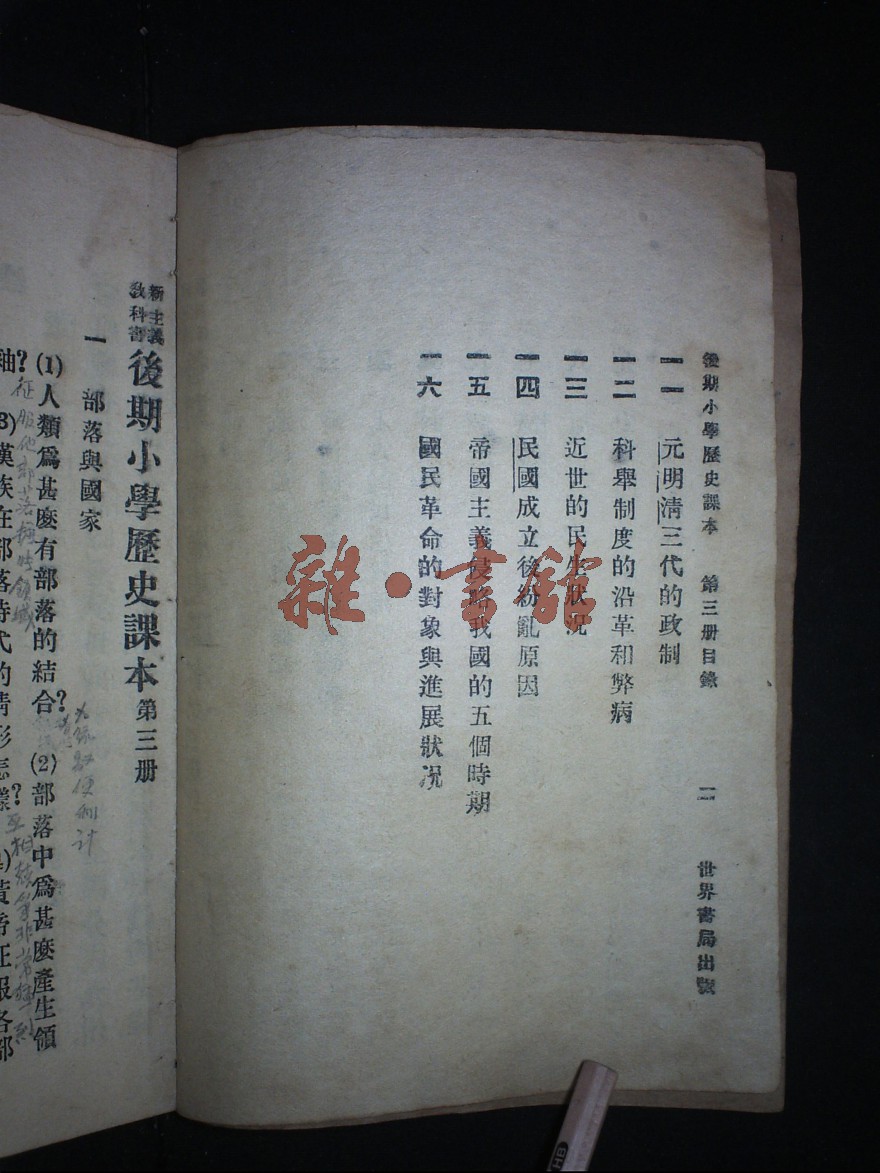 後期小學歷史課本 第三册目錄 二 世界書局出版
一一 元明清三代的政制
一二 科舉制度的沿革和弊病
一三 近世的民生狀況
一四 民國成立後紛亂原因
一五 帝國主義侵略我國的五個時期
一六 國民革命的對象與進展狀况
雜·書館
新主義
教科書
後期小學歷史課本 第三册
一 部落與國家
(1)人類爲甚麽有部落的結合?(2)部落中爲甚麽產生領
袖?(3)漢族在部落時代的情形怎樣?(4)黃帝征服各部
HB